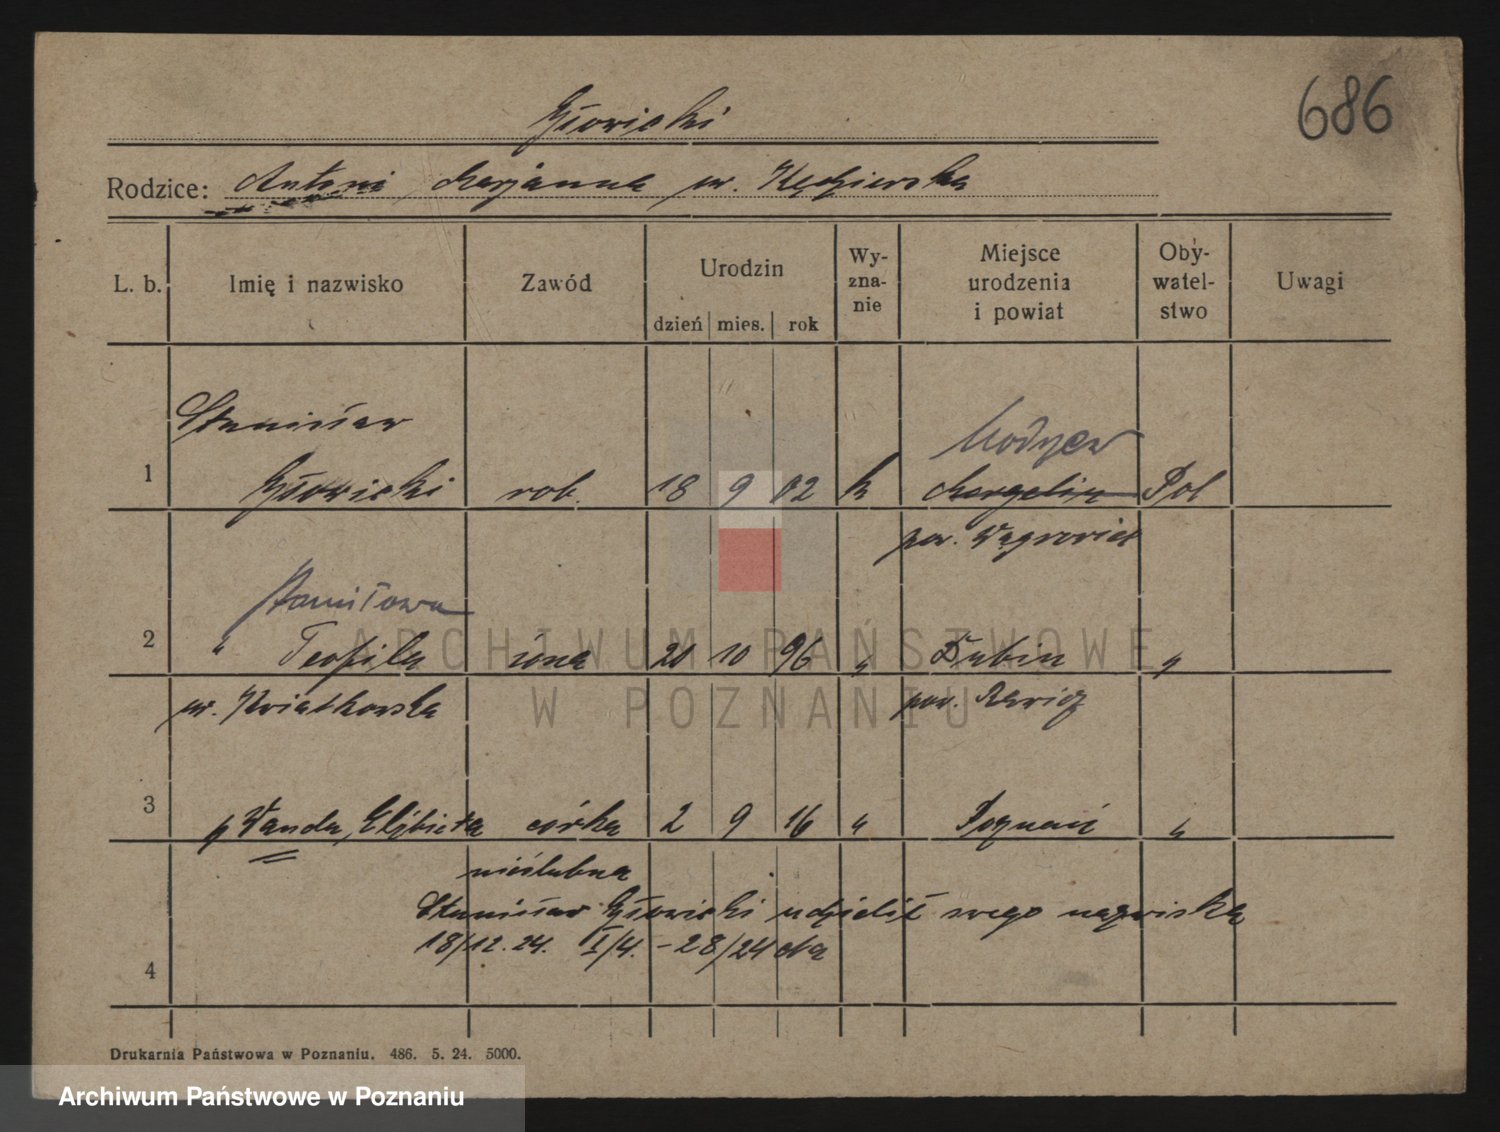 686
Głowicki
Rodzice: Antoni, Marjanna ur. Kędzierska
L. b.
Imię i nazwisko
Zawód
Urodzin
dzień
mies.
rok
Wy-
zna-
nie
Miejsce
urodzenia
i powiat
Oby-
watel-
stwo
Uwagi
Stanisław
1 Głowicki rob. 18 9 02 k Margelin Pol
pow. Wągrowiec
2 " Teofila żona 20 10 96 " Dubin "
ur. Kwiatkowska pow. Rawicz
3 Wanda, Elżbieta córka 2 9 16 " Poznań "
nieślubna
Stanisław Głowicki udzielił swego nazwiska
18/12. 24. I/4. - 28/24
4
Drukarnia Państwowa w Poznaniu. 486. 5. 24. 5000.
ARCHIWUM PAŃSTWOWE
W POZNANIU
Archiwum Państwowe w Poznaniu